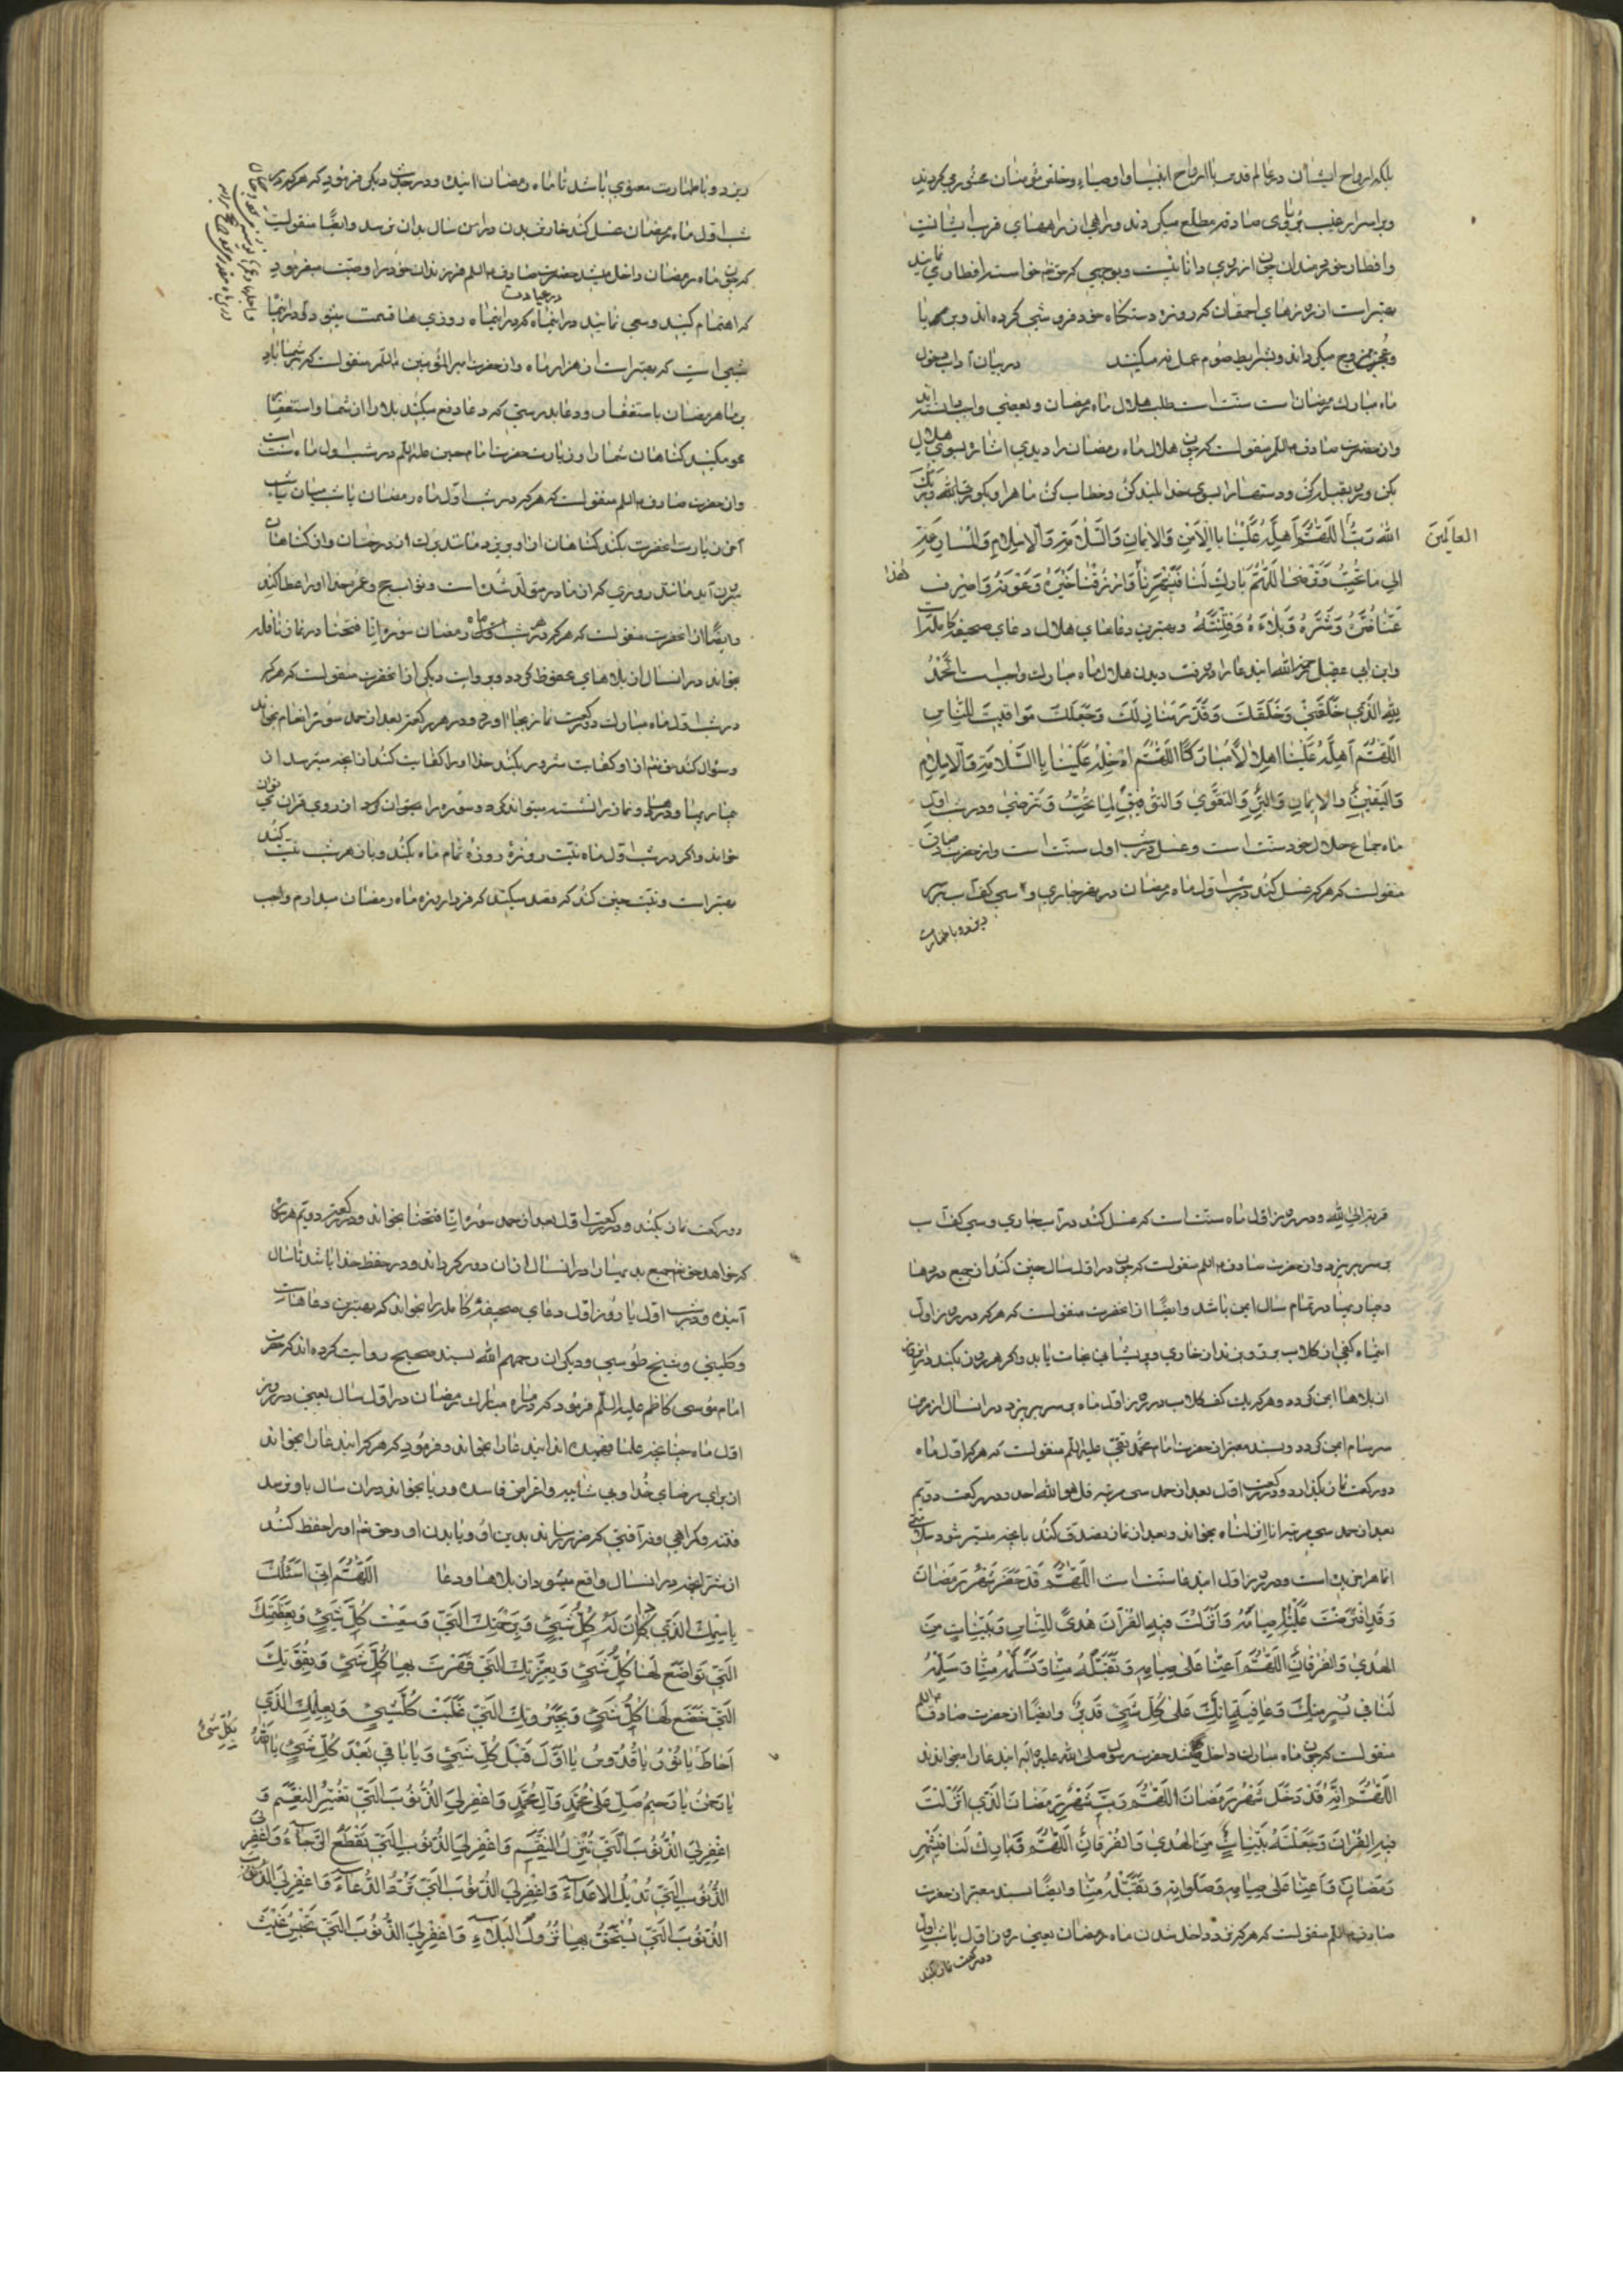 بلکه ارواح ایشان در عالم قدس با ارواح انبیا و اوصیاء و خلّص مؤمنان محشور میگردند
و بر اسرار غیب مطلع میگردند
و افطار
بهتر است از روزهای احمقان که روزه دستگاه خودفروشی کرده اند و
و عجب ممزوج میگرداند و بشرایط صوم عمل نه میکنند در بیان آداب دخول
ماه مبارک رمضان است سنّت است طلب هلال ماه رمضان و بعضی واجب دانسته اند
و از حضرت صادق ع م منقولست که چون هلال ماه رمضان را دیدی اشاره بسوی هلال
مکن و رو بقبله کن و دستها را بسوی خدا بلند کن و خطاب کن ماه را و بگو ربّی الله و ربّک
الله رَبُّ اَللّهُمَّ اَهِلَّهُ عَلَیْنا بِالاَمْنِ وَالاِیمانِ وَالسَّلامَةِ وَالاِسْلامِ وَالمُسارَعَةِ
العالَمینَ
اِلی ما تُحِبُّ وَتَرْضی اَللّهُمَّ بارِکْ لَنا فی شَهْرِنا هذا وَارْزُقْنا خَیْرَهُ وَعَوْنَهُ وَاصْرِفْ
عَنّا ضُرَّهُ وَشَرَّهُ وَبَلاءَهُ وَفِتْنَتَهُ و بهترین دعاهای هلال دعای صحیفه کامله است
و ابن ابی عقیل رحمه الله این دعا را در وقت دیدن هلال ماه مبارک واجب دانسته اَلْحَمْدُ
لِلّهِ الَّذی خَلَقَنی وَخَلَقَکَ وَقَدَّرَ مَنازِلَکَ وَجَعَلَکَ مَواقیتَ لِلنّاسِ
اَللّهُمَّ اَهِلَّهُ عَلَیْنا اِهْلالاً مُبارَکًا اَللّهُمَّ اَدْخِلْهُ عَلَیْنا بِالسَّلامَةِ وَالاِسْلامِ
وَالیَقینِ وَالاِیمانِ وَالبِرِّ وَالتَّقْوی وَالتَّوْفیقِ لِما تُحِبُّ وَتَرْضی و در شب اول
ماه جماع حلال خود سنّت است و غسل در شب اول سنّت است و از حضرت صادق
منقولست که هر که غسل کند در شب اول ماه رمضان در نهر جاری و سی کف آب بر سر
بریزد و باطهارت
بریزد و باطهارت معنوی باشد تا ماه رمضان آینده و در حدیث دیگر فرمود که هر که در
شب اول ماه رمضان غسل کند خارش بدن در این سال بدان نرسد و ایضًا منقولست
که چون ماه رمضان داخل میشد حضرت صادق ع م فرزندان خود را وصیّت میفرمود
که اهتمام کنید و سعی نمائید در عبادت در اینماه که در اینماه روزی ها قسمت میشود و در اینماه
شبی است که بهتر است از هزار ماه و از حضرت امیر المؤمنین ع م منقولست که بر شما باد
در ماه رمضان باستغفار و دعا بدرستی که دعا دفع میکند بلا را از شما و استغفار
محو میکند گناهان شما را و زیارت حضرت امام حسین علیه السلم در شب اول ماه سنّت است
و از حضرت صادق ع م منقولست که هر که در شب اول ماه رمضان یا شب میان یا شب
آخر زیارت آنحضرت بکند گناهان از او بریزد مانند برگ از درختان و از گناهان
بیرون آید مانند روزی که از مادر متولد شده است و ثواب حج و عمره خدا او را عطا کند
و ایضًا از آنحضرت منقولست که هر که در شب اول ماه رمضان سوره انّا فتحنا در نماز نافله
بخواند در آنسال از بلاها محفوظ گردد و بروایت دیگر از آنحضرت منقولست که هر که
در شب اول ماه مبارک دو رکعت نماز بجا آورد و در هر رکعت بعد از حمد سوره انعام بخواند
و سؤال کند حق تعم از او کفایت شرور بکند خدا او را کفایت کند از آنچه میترسد از آن
خواند و اگر در شب اول ماه نیّت روزۀ تمام ماه بکند و باز هر شب نیّت کند
بهتر است و نیّت چنین کند که قصد میکند که فردا روزه ماه رمضان میدارم واجب
قربة الی الله و در روز اول ماه سنّت است که غسل کند در آب جاری و سی کف آب
بر سر بریزد و از حضرت صادق ع م منقولست که چون در اول سال چنین کند از جمیع دردها
و بیماریها در تمام سال ایمن باشد و ایضًا از آنحضرت منقولست که هر که در روز اول
اینماه کفی از گلاب بر رو بزند از خواری و پریشانی نجات یابد و اگر هر روز بکند در آنروز
از بلاها ایمن گردد و هر که یک کف گلاب در روز اول ماه بر سر بریزد در آنسال از مرض
سرسام ایمن گردد و بسند معتبر از حضرت امام محمّد تقی علیه السلم منقولست که هر که در اول ماه
دو رکعت نماز بگذارد و در رکعت اول بعد از حمد سی مرتبه قل هو الله احد و در رکعت دویم
بعد از حمد سی مرتبه انّا انزلناه بخواند و بعد از نماز تصدّق کند بآنچه میسّر شود سلامتی
آنماه را خریده است و در روز اول این دعا سنّت است اَللّهُمَّ قَدْ حَضَرَ شَهْرُ رَمَضانَ
وَقَدِ افْتَرَضْتَ عَلَیْنا صِیامَهُ وَاَنْزَلْتَ فیهِ القُرْآنَ هُدیً لِلنّاسِ وَبَیِّناتٍ مِنَ
الهُدی وَالفُرْقانِ اَللّهُمَّ اَعِنّا عَلی صِیامِهِ وَتَقَبَّلْهُ مِنّا وَتَسَلَّمْهُ مِنّا وَسَلِّمْهُ
لَنا فی یُسْرٍ مِنْکَ وَعافِیَةٍ اِنَّکَ عَلی کُلِّ شَیْءٍ قَدیرٌ و ایضًا از حضرت صادق ع م
منقولست که چون ماه مبارک داخل میشد حضرت رسول صلی الله علیه و آله این دعا را میخواندند
اَللّهُمَّ اِنَّهُ قَدْ دَخَلَ شَهْرُ رَمَضانَ اَللّهُمَّ رَبَّ شَهْرِ رَمَضانَ الَّذی اَنْزَلْتَ
فیهِ القُرْآنَ وَجَعَلْتَهُ بَیِّناتٍ مِنَ الهُدی وَالفُرْقانِ اَللّهُمَّ فَبارِکْ لَنا فی شَهْرِ
رَمَضانَ وَاَعِنّا عَلی صِیامِهِ وَصَلَواتِهِ وَتَقَبَّلْهُ مِنّا و ایضًا بسند معتبر از حضرت
صادق ع م منقولست که هر که نزد داخل شدن ماه رمضان یعنی روز اول یا شب اول
دو رکعت نماز بکند
دو رکعت نماز بکند و در رکعت اول بعد از حمد سوره انّا فتحنا بخواند و در رکعت دویم هر سوره
که خواهد حق تعم جمیع بدیها را در آنسال از آن دور گرداند و در حفظ خدا باشد تا سال
آینده و در شب اول یا روز اول دعای صحیفۀ کامله را بخواند که بهترین دعاهاست
و کلینی و شیخ طوسی و دیگران رحمهم الله بسند صحیح روایت کرده اند که حضرت
امام موسی کاظم علیه السلم فرمود که در ماه مبارک رمضان در اول سال یعنی در روز
اول ماه چنانچه علما فهمیده اند این دعا را بخواند و فرمود که هر که این دعا را بخواند
از برای رضای خدا و بی شائبه و اغراض فاسده و ریا بخواند در آن سال باو نرسد
فتنه و گمراهی و نه آفتی که ضرر رساند بدین او و یا بدن او و حق تعم او را حفظ کند
از شرّ آنچه در آنسال واقع میشود از بلاها و دعا اَللّهُمَّ اِنّی اَسْئَلُکَ
بِاسْمِکَ الَّذی دانَ لَهُ کُلُّ شَیْءٍ وَبِرَحْمَتِکَ الَّتی وَسِعَتْ کُلَّ شَیْءٍ وَبِعَظَمَتِکَ
الَّتی تَواضَعَ لَها کُلُّ شَیْءٍ وَبِعِزَّتِکَ الَّتی قَهَرْتَ بِها کُلَّ شَیْءٍ وَبِقُوَّتِکَ
الَّتی خَضَعَ لَها کُلُّ شَیْءٍ وَبِجَبَرُوتِکَ الَّتی غَلَبَتْ کُلَّ شَیْءٍ وَبِعِلْمِکَ الَّذی
اَحاطَ یا نُورُ یا قُدُّوسُ یا اَوَّلَ قَبْلَ کُلِّ شَیْءٍ وَیا باقی بَعْدَ کُلِّ شَیْءٍ یا اَللهُ
بِکُلِّ شَیْءٍ
یا رَحْمنُ یا رَحیمُ صَلِّ عَلی مُحَمَّدٍ وَآلِ مُحَمَّدٍ وَاغْفِرْ لِیَ الذُّنُوبَ الَّتی تُغَیِّرُ النِّعَمَ وَ
اغْفِرْ لِیَ الذُّنُوبَ الَّتی تُنْزِلُ النِّقَمَ وَاغْفِرْ لِیَ الذُّنُوبَ الَّتی تَقْطَعُ الرَّجاءَ وَاغْفِرْ لِیَ
الذُّنُوبَ الَّتی تُدیلُ الاَعْداءَ وَاغْفِرْ لِیَ الذُّنُوبَ الَّتی تَرُدُّ الدُّعاءَ وَاغْفِرْ لِیَ
الذُّنُوبَ الَّتی یُسْتَحَقُّ بِها نُزُولُ البَلاءِ وَاغْفِرْ لِیَ الذُّنُوبَ الَّتی تَحْبِسُ غَیْثَ